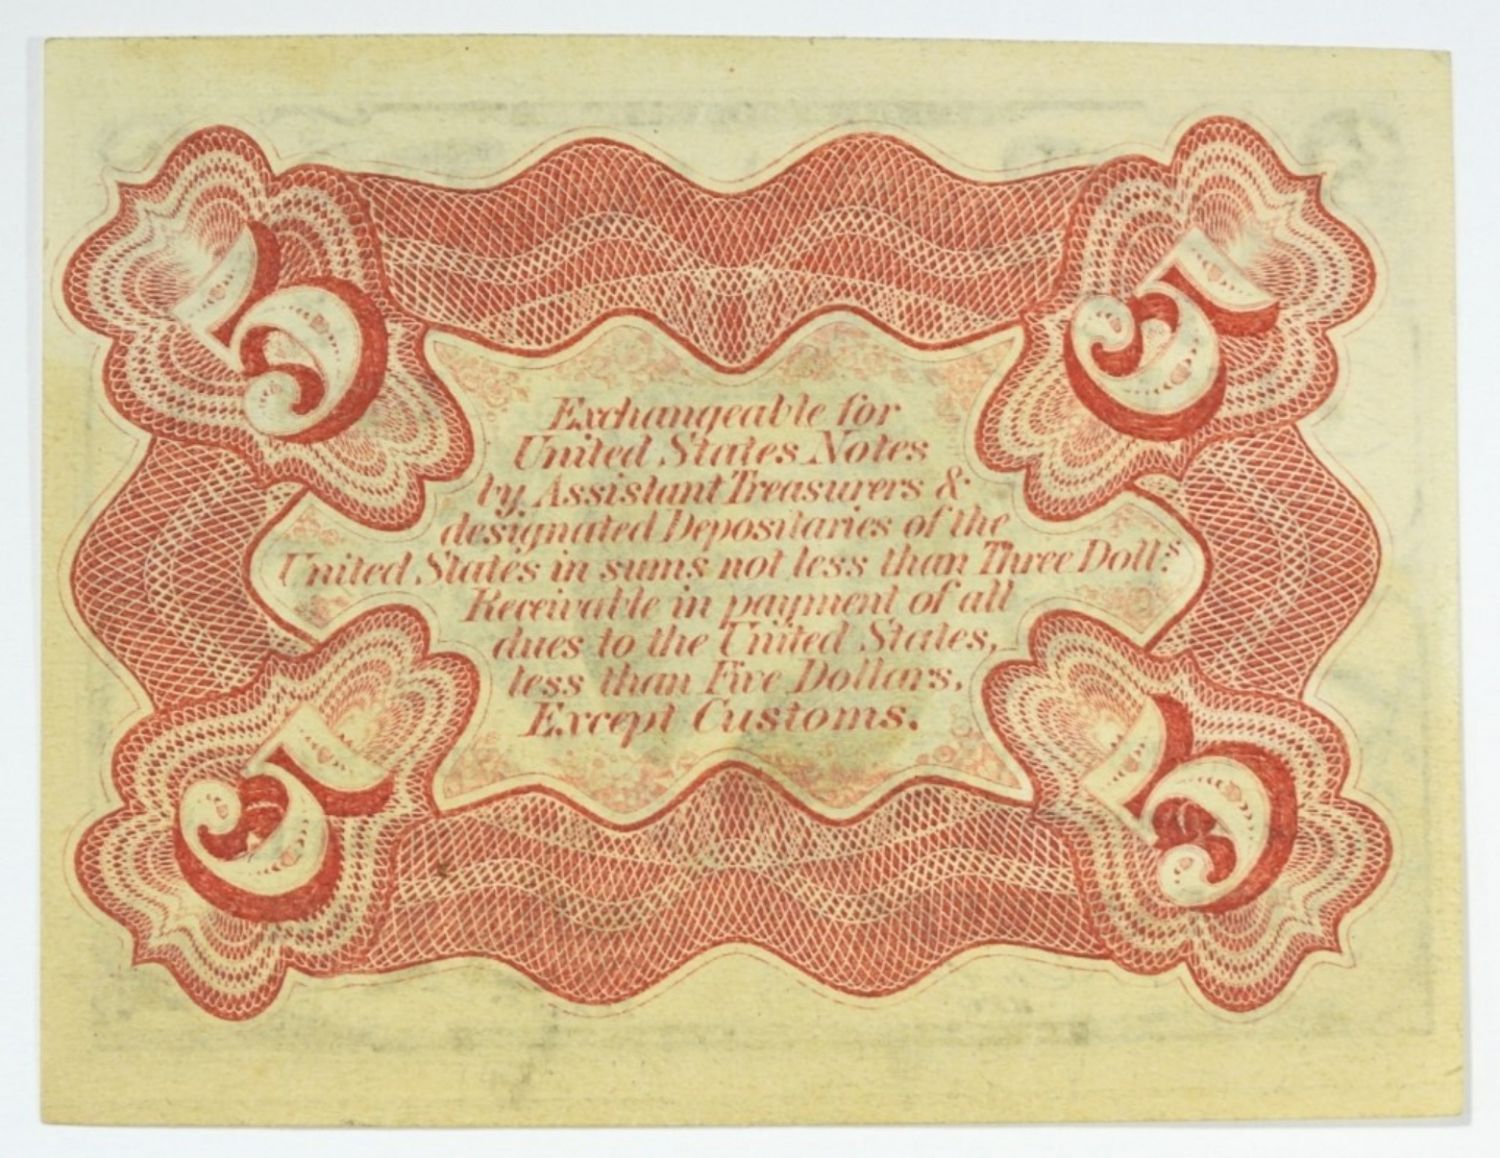 5 5
Exchangeable for
United States Notes
by Assistant Treasurers &
designated Depositaries of the
United States in sums not less than Three Doll.s
Receivable in payment of all
dues to the United States,
less than Five Dollars,
Except Customs.
5 5